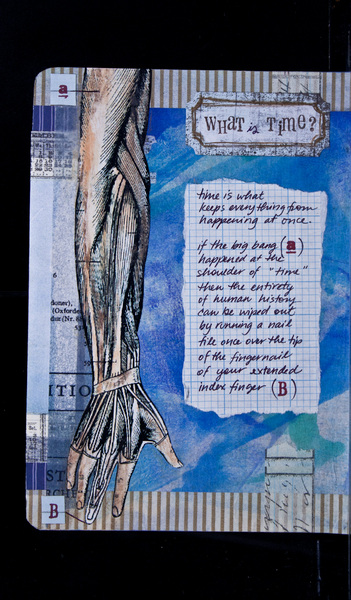 a
WHAT is Time?
time is what
keeps everything from
happening at once.
if the big bang (a)
happened at the
shoulder of "time"
then the entirety
of human history
can be wiped out
by running a nail
file once over the tip
of the fingernail
of your extended
index finger (B)
6
(Oxford
du (Nr.
ITIO
ST
B